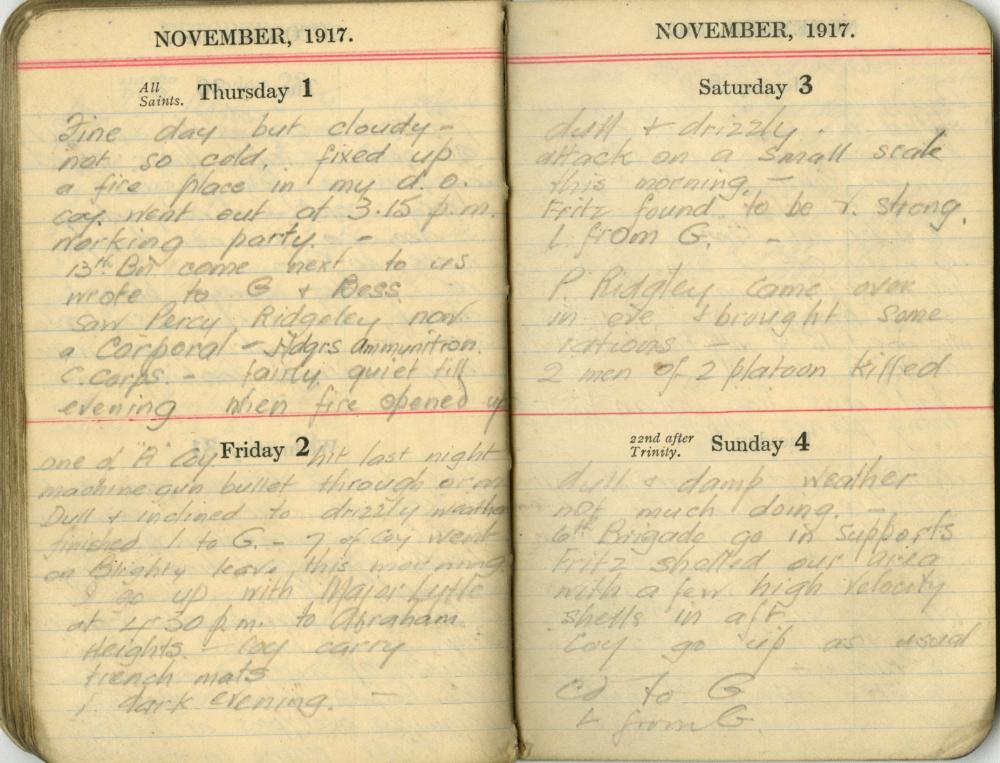 NOVEMBER, 1917.
All Saints. Thursday 1
Fine day but cloudy -
not so cold. fixed up
a fire place in my d. o.
coy. went out at 3.15 p.m.
working party. -
13th Bn come next to us
wrote to G & Bess
saw Percy Ridgeley now
a Corporal - Hdqrs Ammunition.
C. Corps. - fairly quiet till
evening when fire opened up
Friday 2
one of A Coy. hit last night
machine gun bullet through arm
Dull & inclined to drizzly weather
finished 1 to G. - 7 of Coy went
on Blighty leave this morning
I go up with Major Lytle
at 4.30 p.m. to Abraham
Heights - coy carry
trench mats
dark evening. -
NOVEMBER, 1917.
Saturday 3
dull & drizzly.
attack on a small scale
this morning. -
Fritz found to be v. strong.
L. from G. -
P Ridgley came over
in eve & brought some
rations -
2 men of 2 platoon killed
22nd after Trinity. Sunday 4
dull & damp weather
not much doing. -
6th Brigade go in supports
Fritz shelled our area
with a few high velocity
shells in aft.
Coy go up as usual
Cd to G
L from G